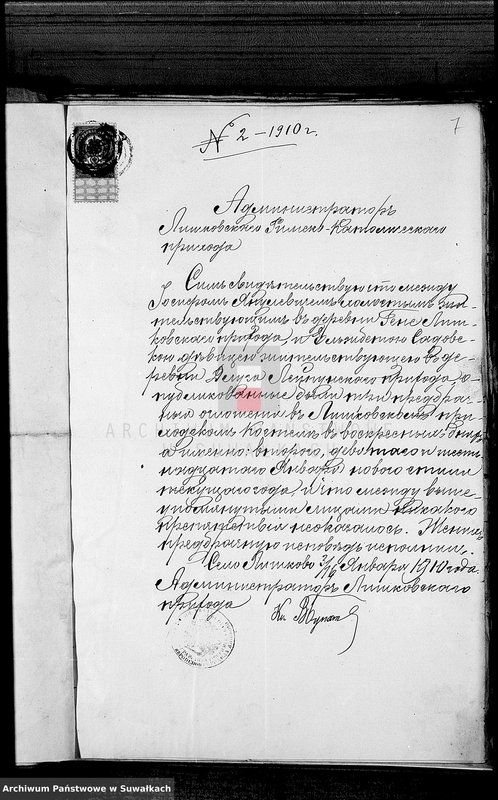 № 2 – 1910 г.
7
Администраторъ
Лишковскаго Римско-Католическаго
прихода
Симъ свидѣтельствую что между
холостымъ жи-
тельствующимъ въ деревнѣ Лиш-
ковскаго прихода, и Садовс-
кою дѣвицею жительствующею въ де-
ревнѣ прихода, о-
публикованные были три предбрач-
ныя оглашенія въ Лишковскомъ при-
ходскомъ костелѣ въ воскресные дни,
а именно: второго, девятаго и шест-
надцатаго Января новаго стиля
текущаго года, и что между выше-
упомянутыми лицами никакого
препятствія не оказалось. Женихъ
предбрачную исповѣдь исполнилъ.
Село Лишково 3/16 Января 1910 года
Администраторъ Лишковскаго
прихода
Кс.
ARCHIWUM
Archiwum Państwowe w Suwałkach